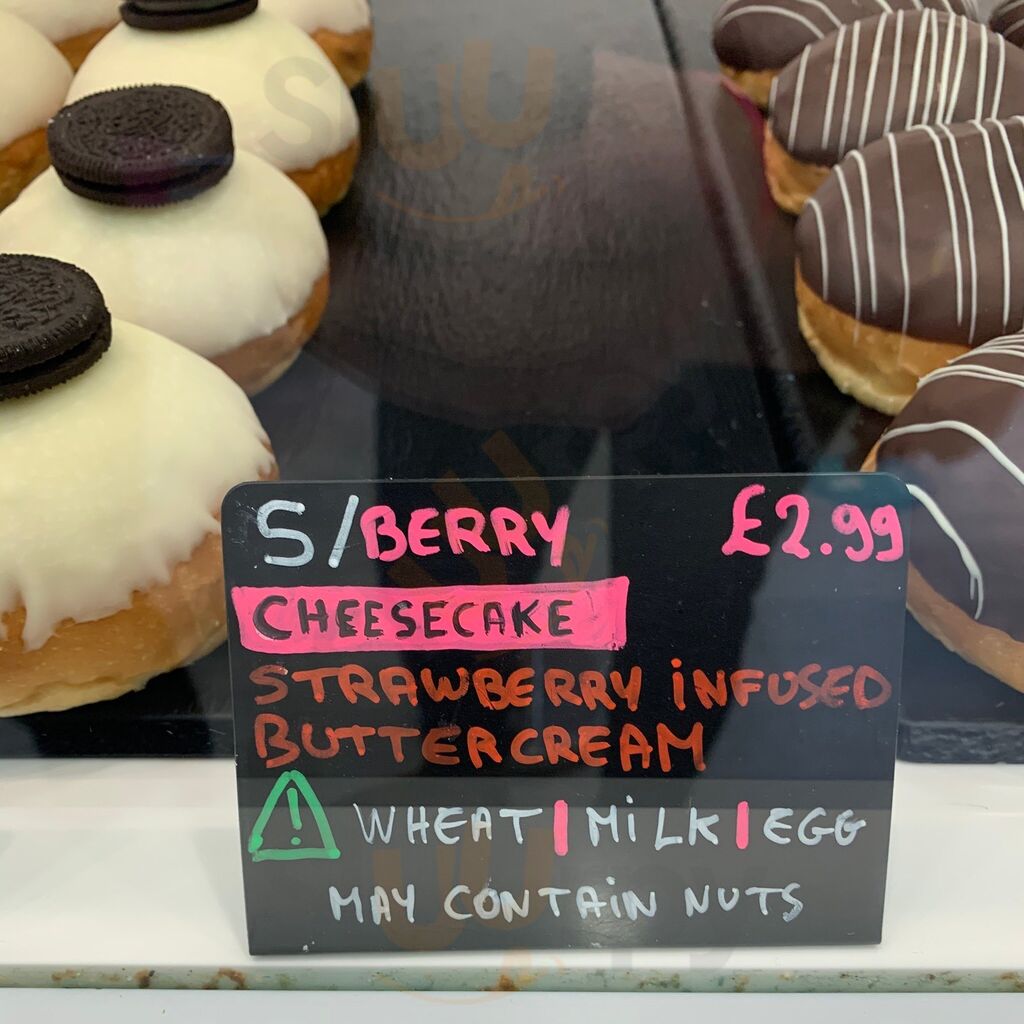 S/BERRY £2.99
CHEESECAKE
STRAWBERRY iNFUSED
BUTTERCREAM
! WHEAT | MiLK | EGG
MAY CONTAiN NUTS